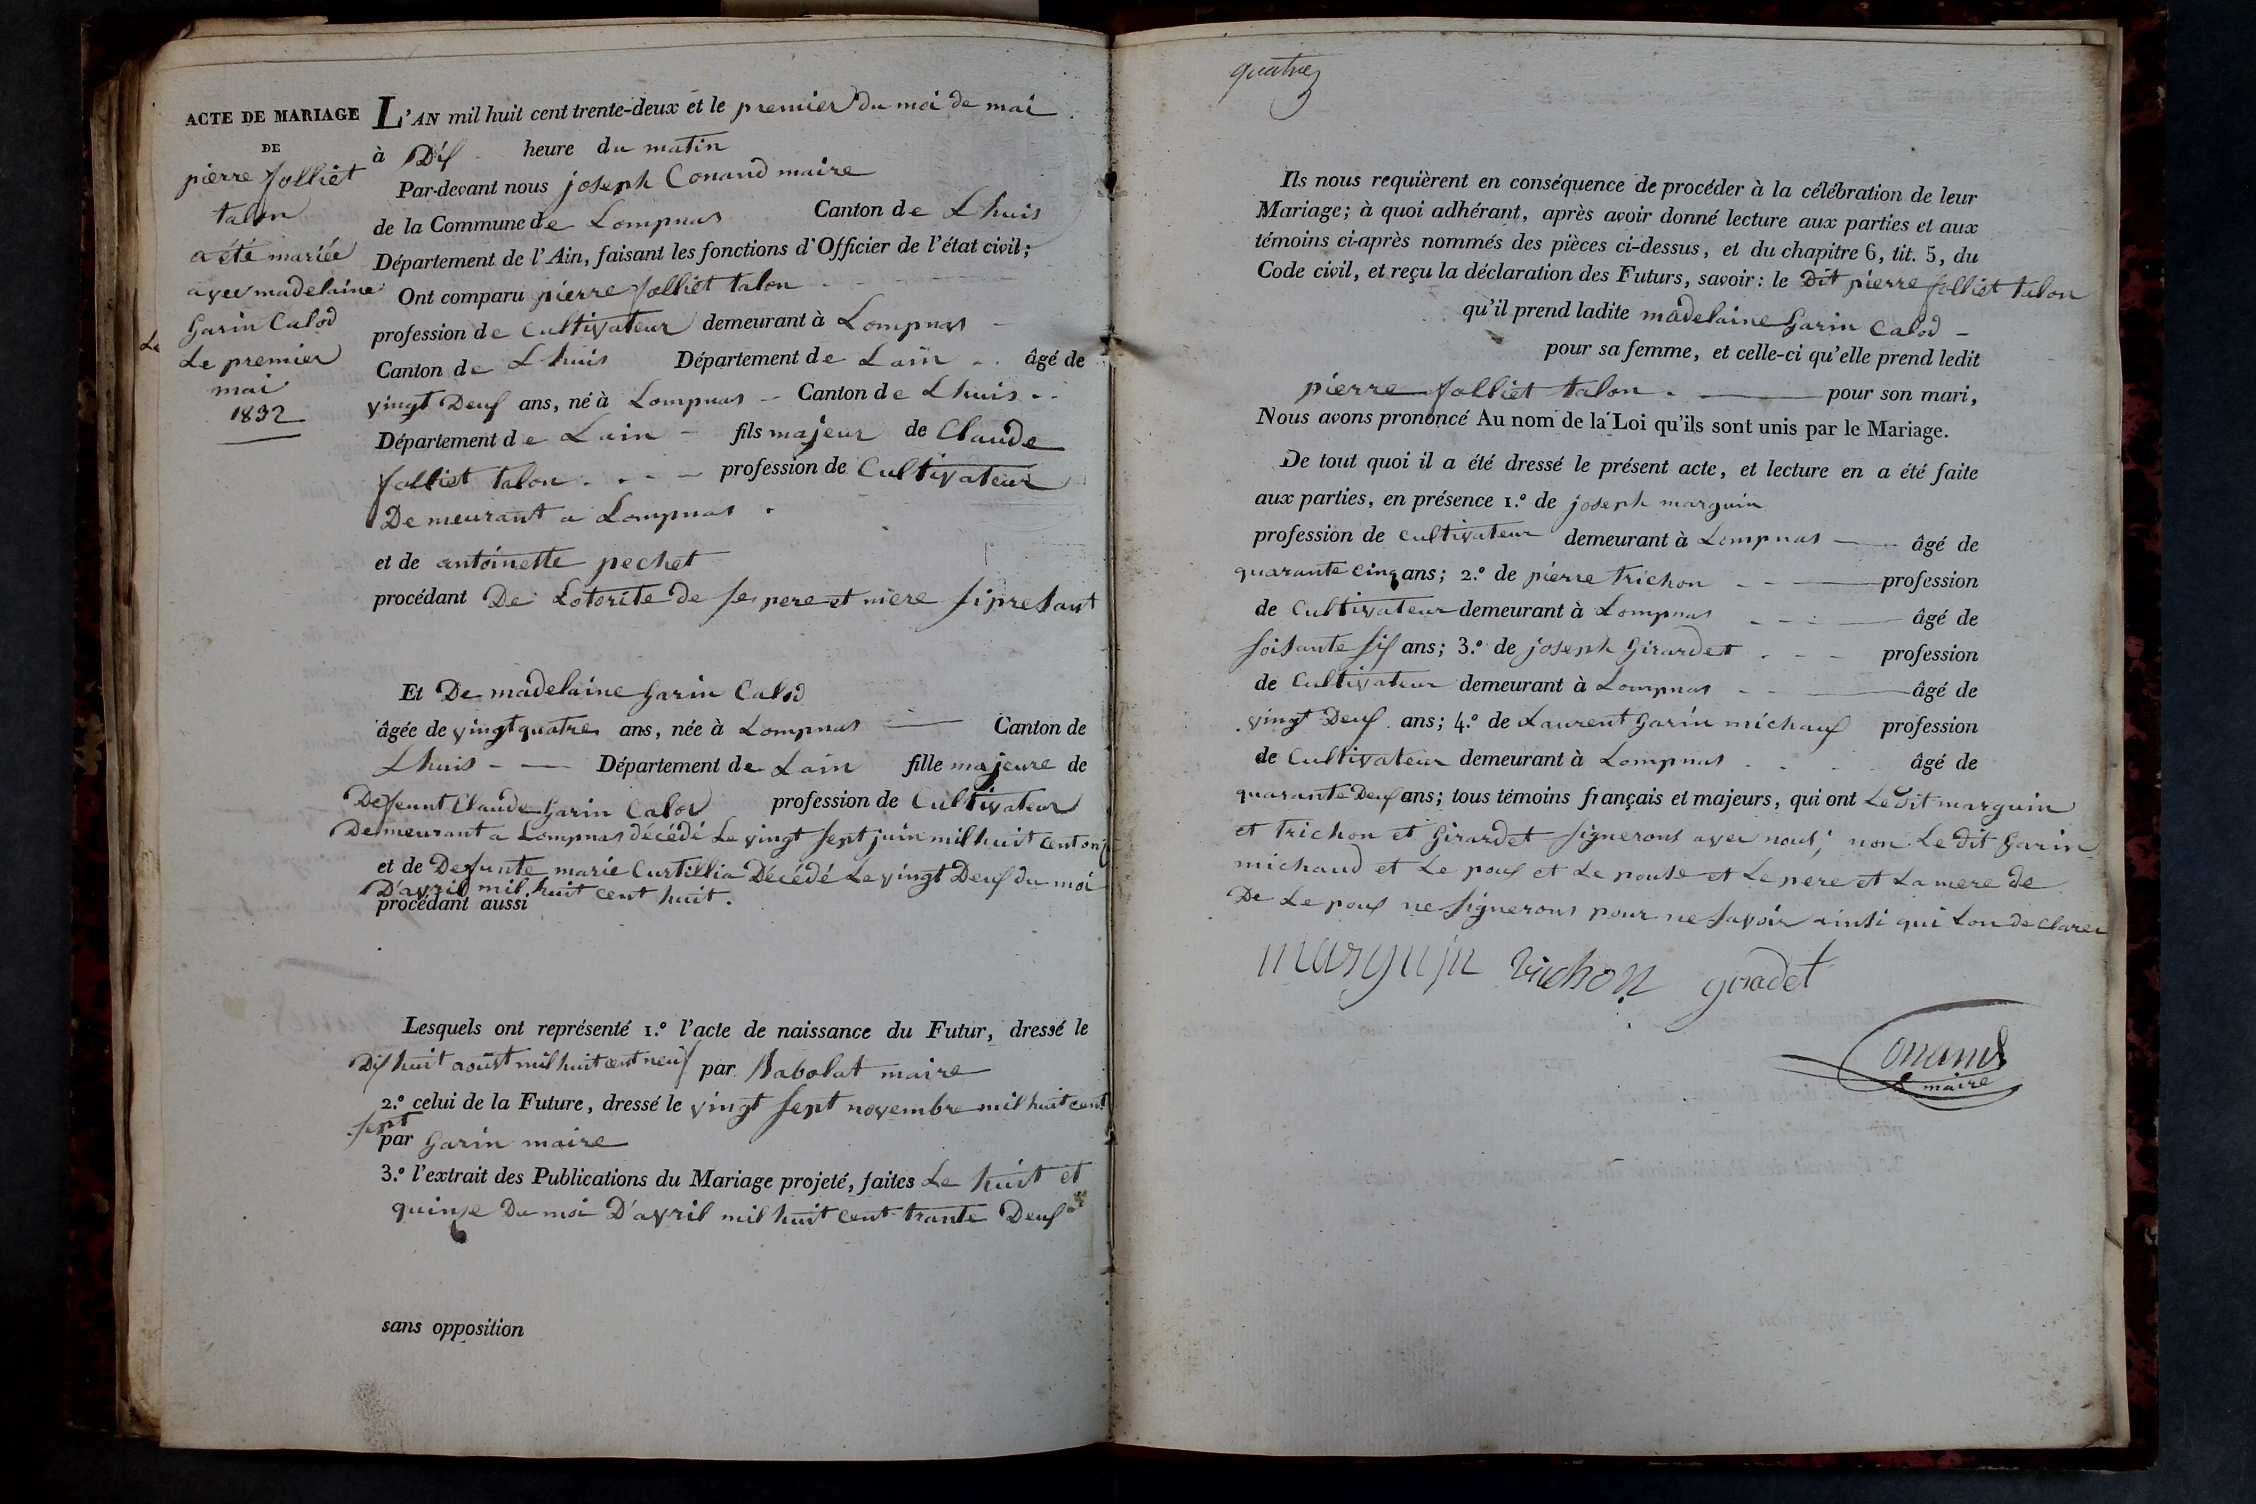 ACTE DE MARIAGE
DE
pierre Jolliet
talon
a été mariée
avec madelaine
Garin Calod
Le
Le premier
mai
1832
L'AN mil huit cent trente-deux et le premier du moi de mai
à Dix heure du matin
Par-devant nous joseph Conand maire
de la Commune de Lompnas Canton de Lhuis
Département de l'Ain, faisant les fonctions d'Officier de l'état civil;
Ont comparu pierre Jolliet talon
profession de Cultivateur demeurant à Lompnas
Canton de Lhuis Département de Lain âgé de
vingt Deux ans, né à Lompnas Canton de Lhuis
Département de Lain fils majeur de Claude
Jolliet talon profession de Cultivateur
Demeurant a Lompnas
et de antoinette pechet
procédant De Lotorite de se pere et mere si presant
Et De madelaine Garin Calod
âgée de vingt quatre ans, née à Lompnas Canton de
Lhuis Département de Lain fille majeure de
Defeunt Claude Garin Calod profession de Cultivateur
Demeurant a Lompnas décédé Le vingt sept juin mil huit cent onz
et de Defunte marie Curtillia Décédé Le vingt Deux du moi
D'avril mil huit cent huit.
procédant aussi
Lesquels ont représenté 1.º l'acte de naissance du Futur, dressé le
Dix huit août mil huit cent neuf par Rabolat maire
2.º celui de la Future, dressé le vingt sept novembre mil huit cent
sept
par Garin maire
3.º l'extrait des Publications du Mariage projeté, faites Le huit et
quinze Du moi D'avril mil huit cent trante Deux
sans opposition
quatre
Ils nous requièrent en conséquence de procéder à la célébration de leur
Mariage; à quoi adhérant, après avoir donné lecture aux parties et aux
témoins ci-après nommés des pièces ci-dessus, et du chapitre 6, tit. 5, du
Code civil, et reçu la déclaration des Futurs, savoir: le Dit pierre Jolliet talon
qu'il prend ladite madelaine Garin Calod
pour sa femme, et celle-ci qu'elle prend ledit
pierre Jolliet talon pour son mari,
Nous avons prononcé Au nom de la Loi qu'ils sont unis par le Mariage.
De tout quoi il a été dressé le présent acte, et lecture en a été faite
aux parties, en présence 1.º de joseph marguin
profession de cultivateur demeurant à Lompnas âgé de
quarante cinq ans; 2.º de pierre trichon profession
de Cultivateur demeurant à Lompnas âgé de
soisante six ans; 3.º de joseph Girardet profession
de Cultivateur demeurant à Lompnas âgé de
vingt Deux ans; 4.º de Laurent Garin michaux profession
de Cultivateur demeurant à Lompnas âgé de
quarante Deux ans; tous témoins français et majeurs, qui ont Le Dit marguin
et trichon et Girardet signerons avec nous; non Le Dit Garin
michaud et Le poux et Le pouse et Le pere et La mere de
De Le poux ne signerons pour ne savoir ainsi qui Lon declarer
marguin trichon giradet
Conand
maire